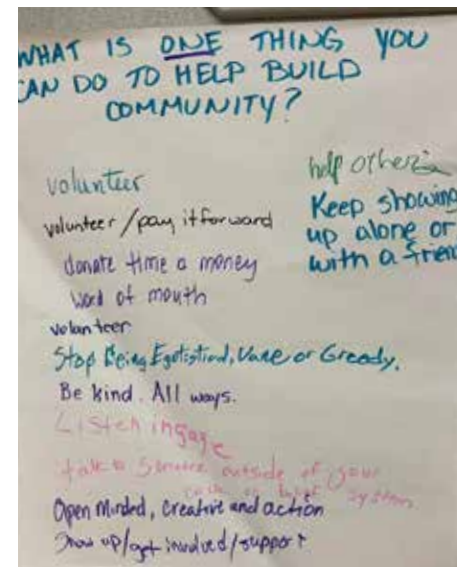 WHAT IS ONE THING YOU
CAN DO TO HELP BUILD
COMMUNITY?
volunteer
volunteer/pay it forward
donate time a money
Word of mouth
volunteer
Stop Being Egotistical, Vane or Greedy.
Be kind. All ways.
Listen ingage
talk to Someone outside of your
System
Open Minded, Creative and action
Show up/get involved/support
help others
Keep showing
up alone or
with a friend